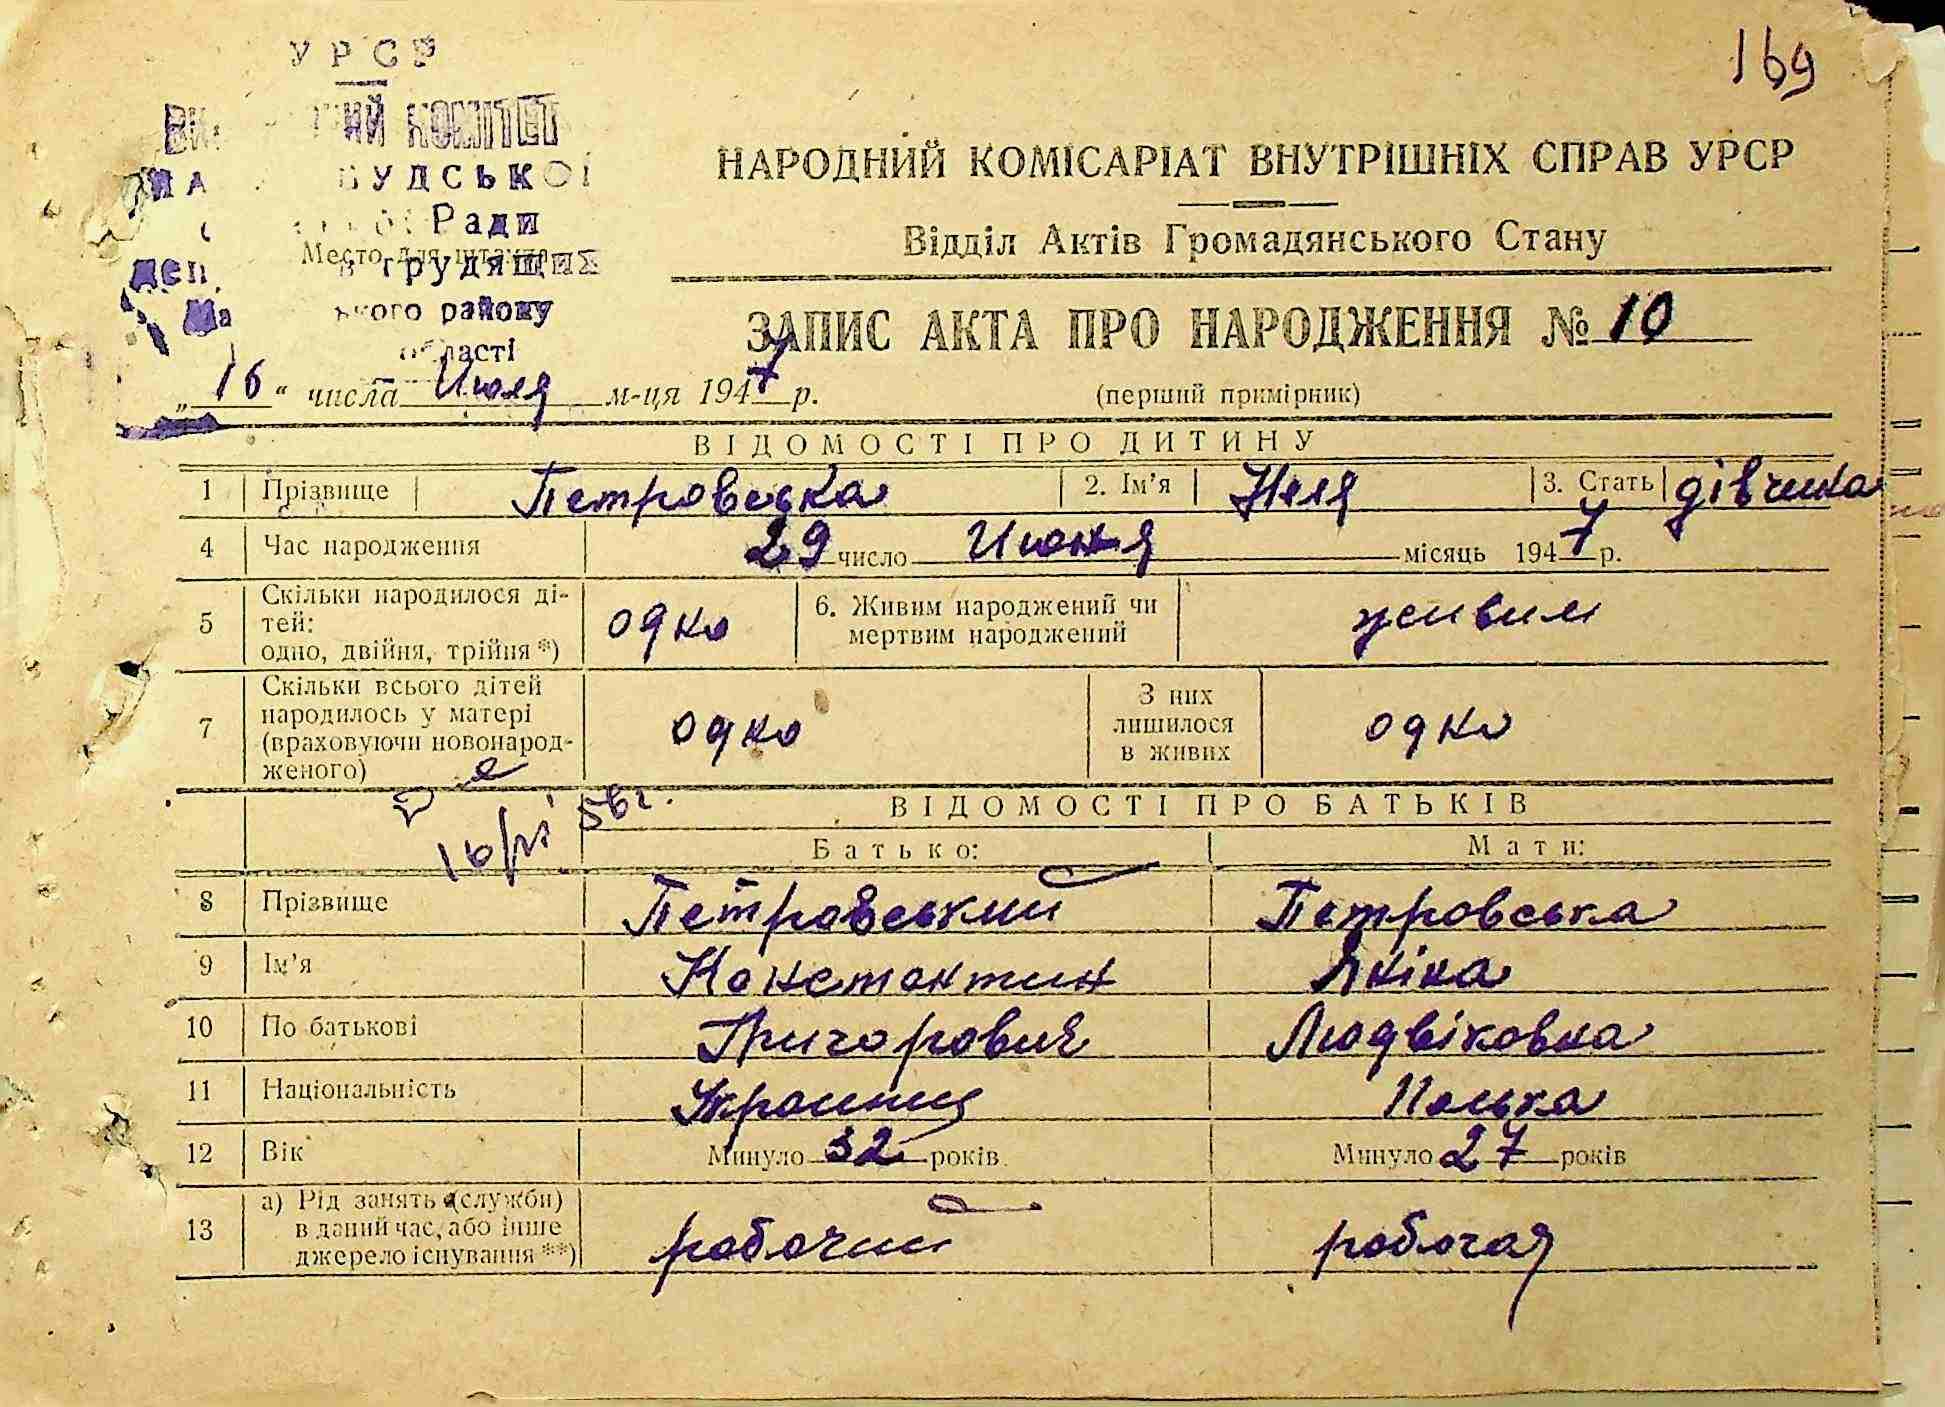 169
УРСР
КОМІТЕТ
БУДСЬКОЇ
Ради
Место для штампа
трудящих
ького району
області
НАРОДНИЙ КОМІСАРІАТ ВНУТРІШНІХ СПРАВ УРСР
Відділ Актів Громадянського Стану
ЗАПИС АКТА ПРО НАРОДЖЕННЯ № 10
„16“ числа Июля м-ця 1947 р.
(перший примірник)
ВІДОМОСТІ ПРО ДИТИНУ
1 Прізвище Петровська 2. Ім’я Неля 3. Стать дівчина
4 Час народження 29 число Июня місяць 1947 р.
5 Скільки народилося ді-
тей:
одно, двійня, трійня *) одно 6. Живим народжений чи
мертвим народжений живим
7 Скільки всього дітей
народилось у матері
(враховуючи новонарод-
женого) одно З них
лишилося
в живих одно
16/VI 56 г.
ВІДОМОСТІ ПРО БАТЬКІВ
Батько: Мати:
8 Прізвище Петровський Петровська
9 Ім’я Константин Яніна
10 По батькові Григорович Людвіковна
11 Національність Украинец Полька
12 Вік Минуло 32 років Минуло 27 років
13 а) Рід занять (служби)
в даний час, або інше
джерело існування **) рабочий рабочая